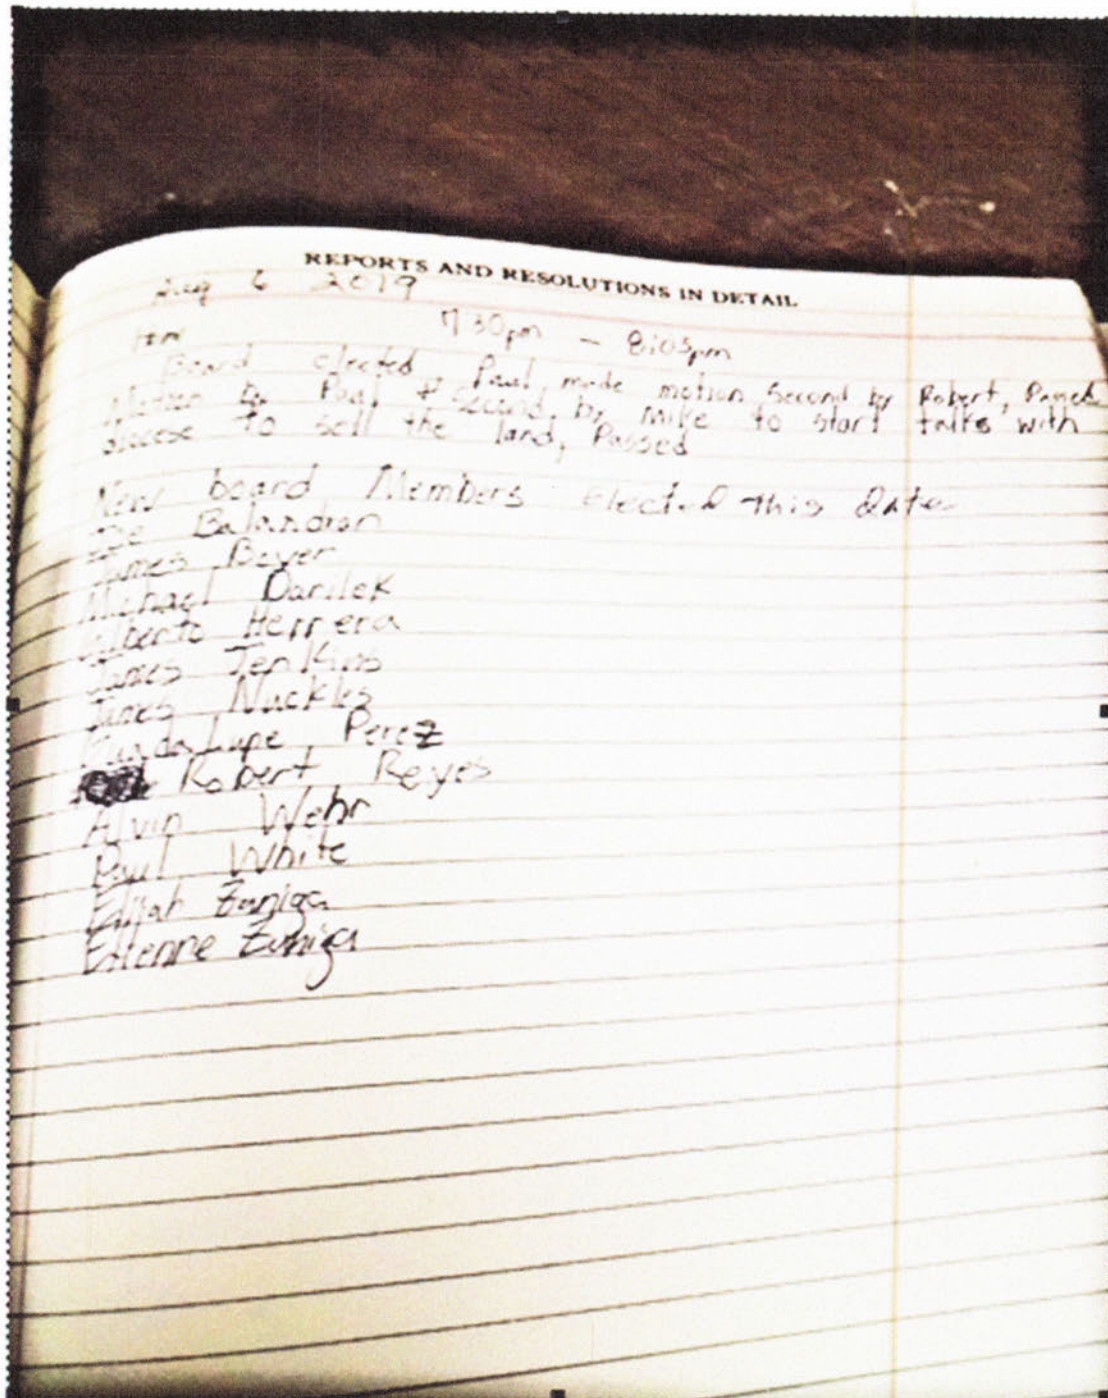 REPORTS AND RESOLUTIONS IN DETAIL
Aug 6 2019
7:30pm - 8:05pm
Board elected, Paul made motion second by Robert, Passed
Motion by Paul & second, by Mike to start talks with
diocese to sell the land, Passed
New board Members Elected This Date
Joe Balandran
James Beyer
Michael Darilek
Gilberto Herrera
James Jenkins
James Nuckles
Guadalupe Perez
Robert Reyes
Alvin Wehr
Paul White
Elijah Zuniga
Etienne Zuniga